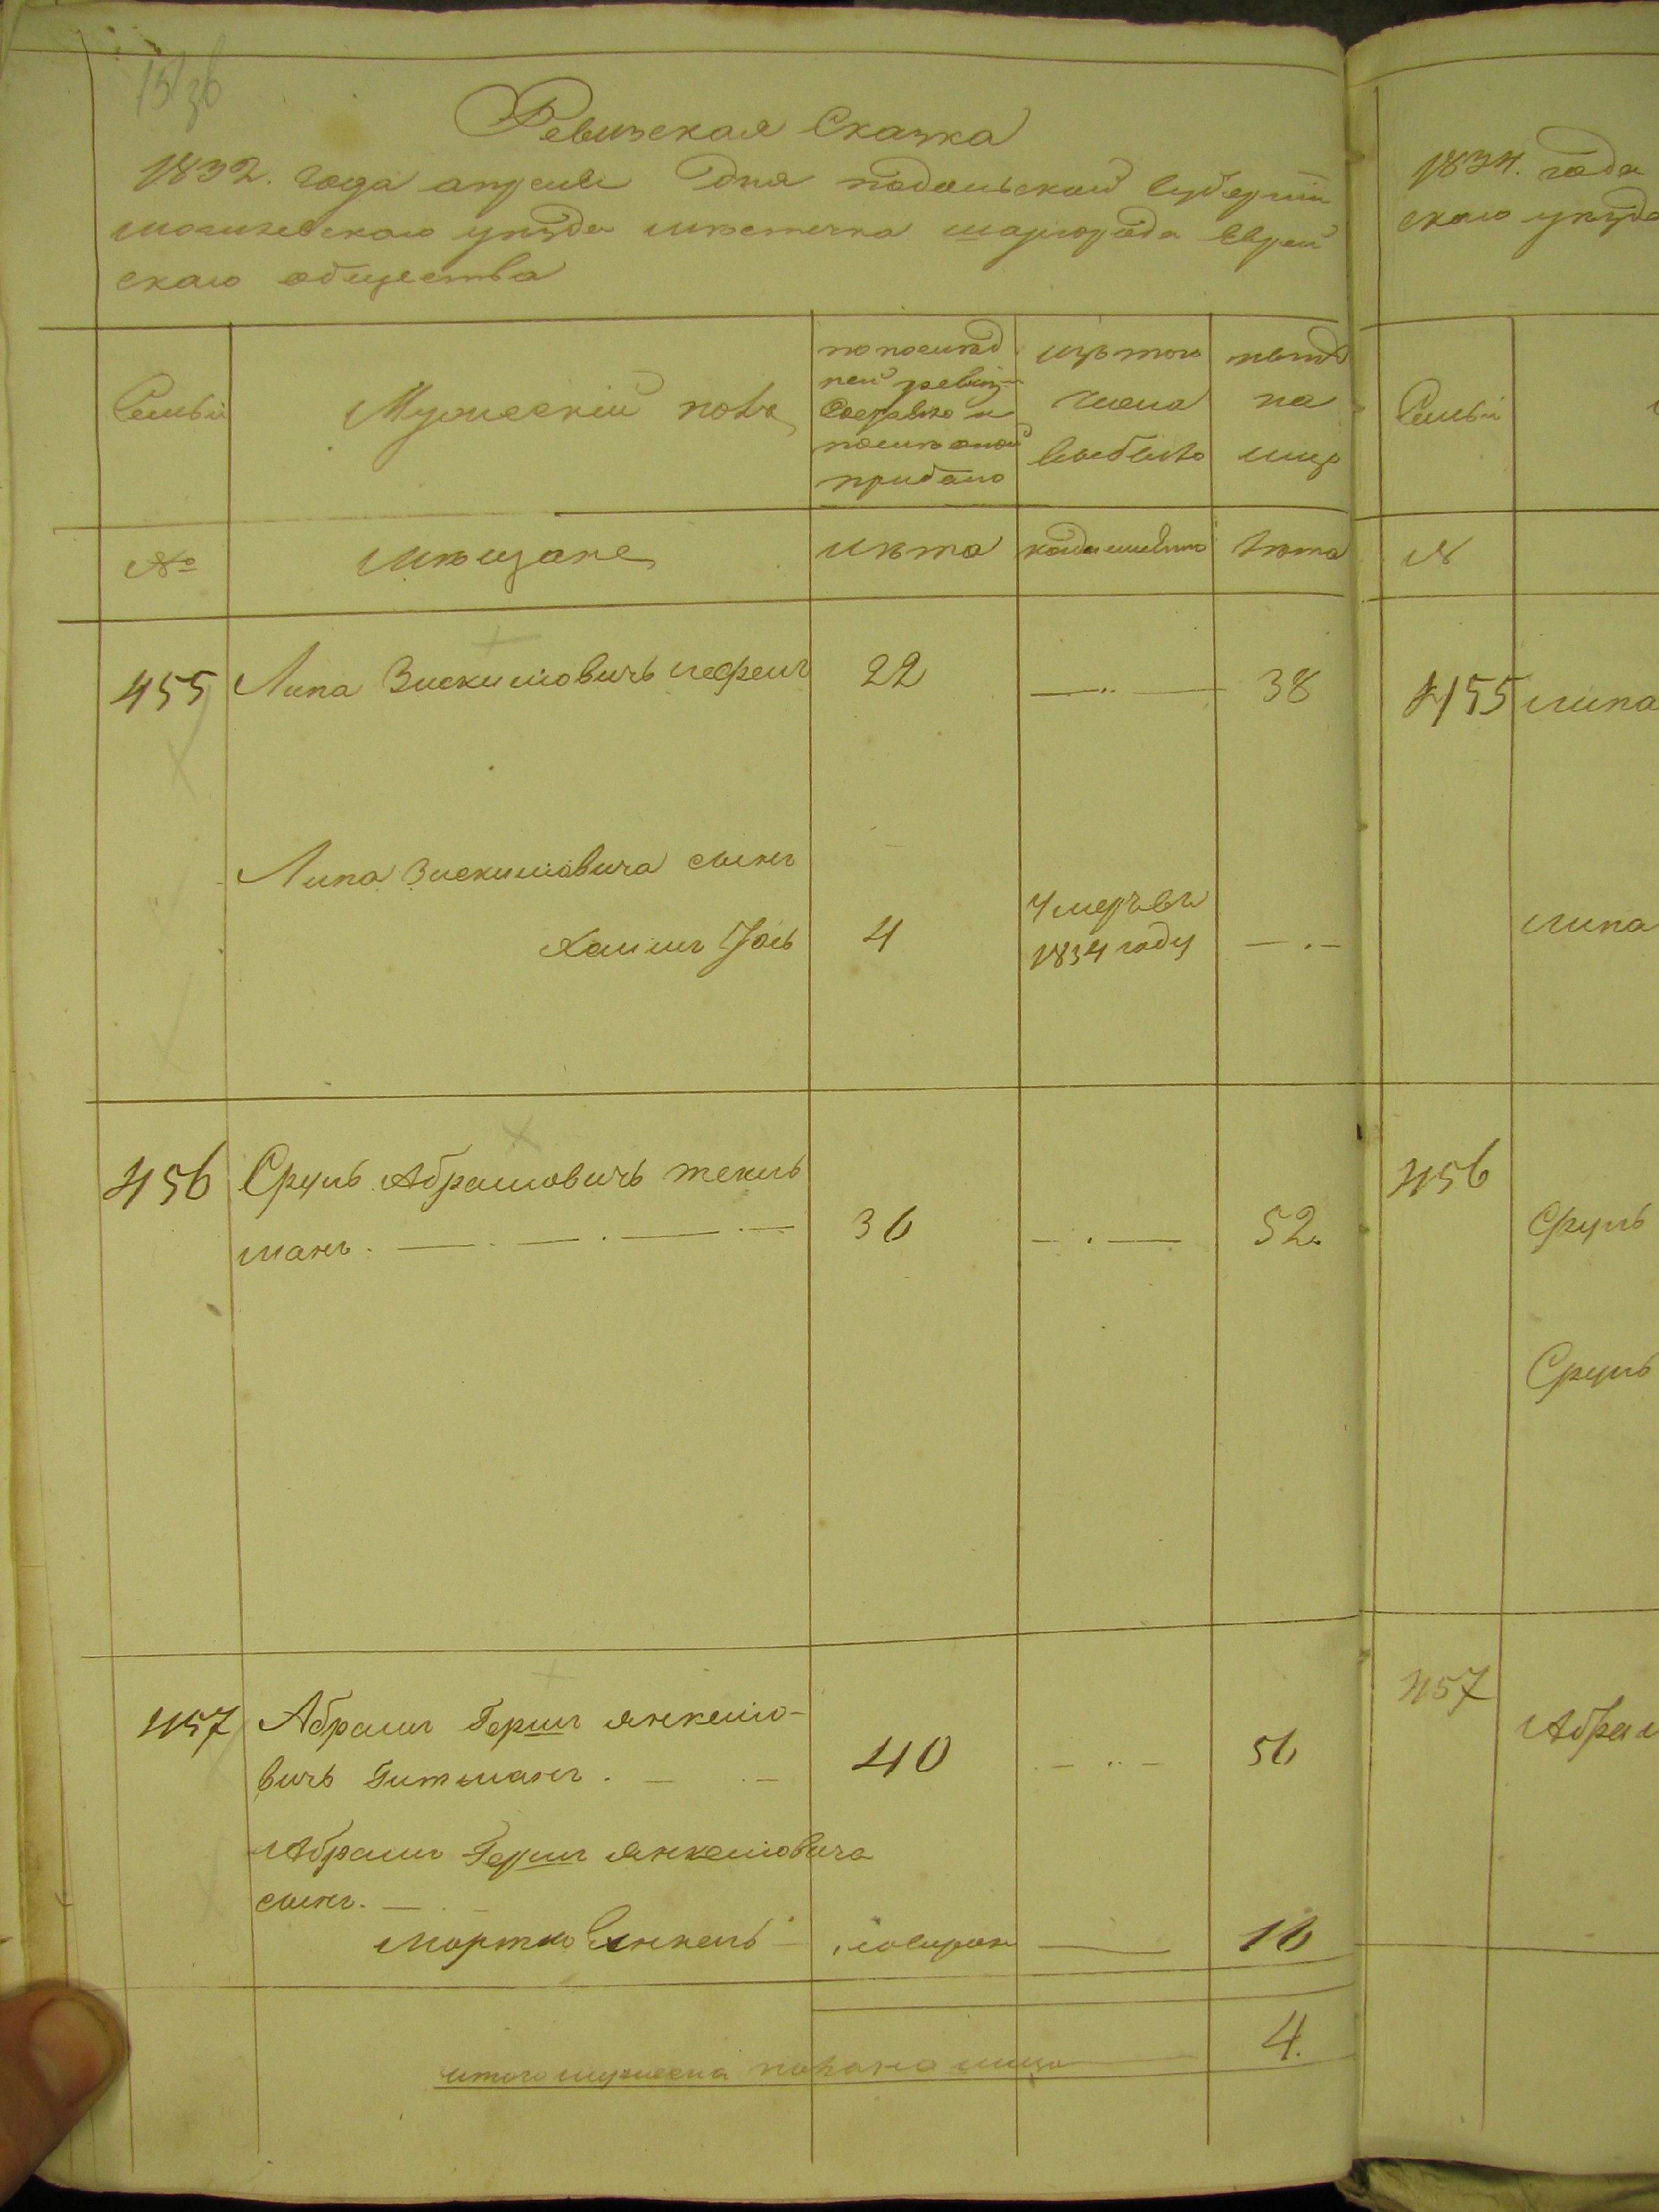 Ревизская Сказка
1832. года апреля дня подольской Губернии
могилевского уезда местечка шаргорода Еврей
ского общества
Семьи
Мужеский полъ
по послед
ней ревиз
Состояло и
после оной
прибыло
изъ того
числа
выбыло
ныне
на
лицо
№
мещане
лета
когда именно
лета
455 Липа Зискиловичъ 22 38
Липа Зискиловича сынъ
Хаимъ Іось 4 Умеръ въ
1834 году
456 Сруль Абрамовичъ текель
манъ. 36 52.
457 Абрамъ Гершъ янкело-
вичъ Гитманъ. 40 56
Абрамъ Гершъ янкеловича
сынъ.
Мортко янкель 16
итого мужеска пола на лицо 4.
1834. года
ского уезда
Семьи
№
455 липа
липа
456
Сруль
Сруль
457
Абрам